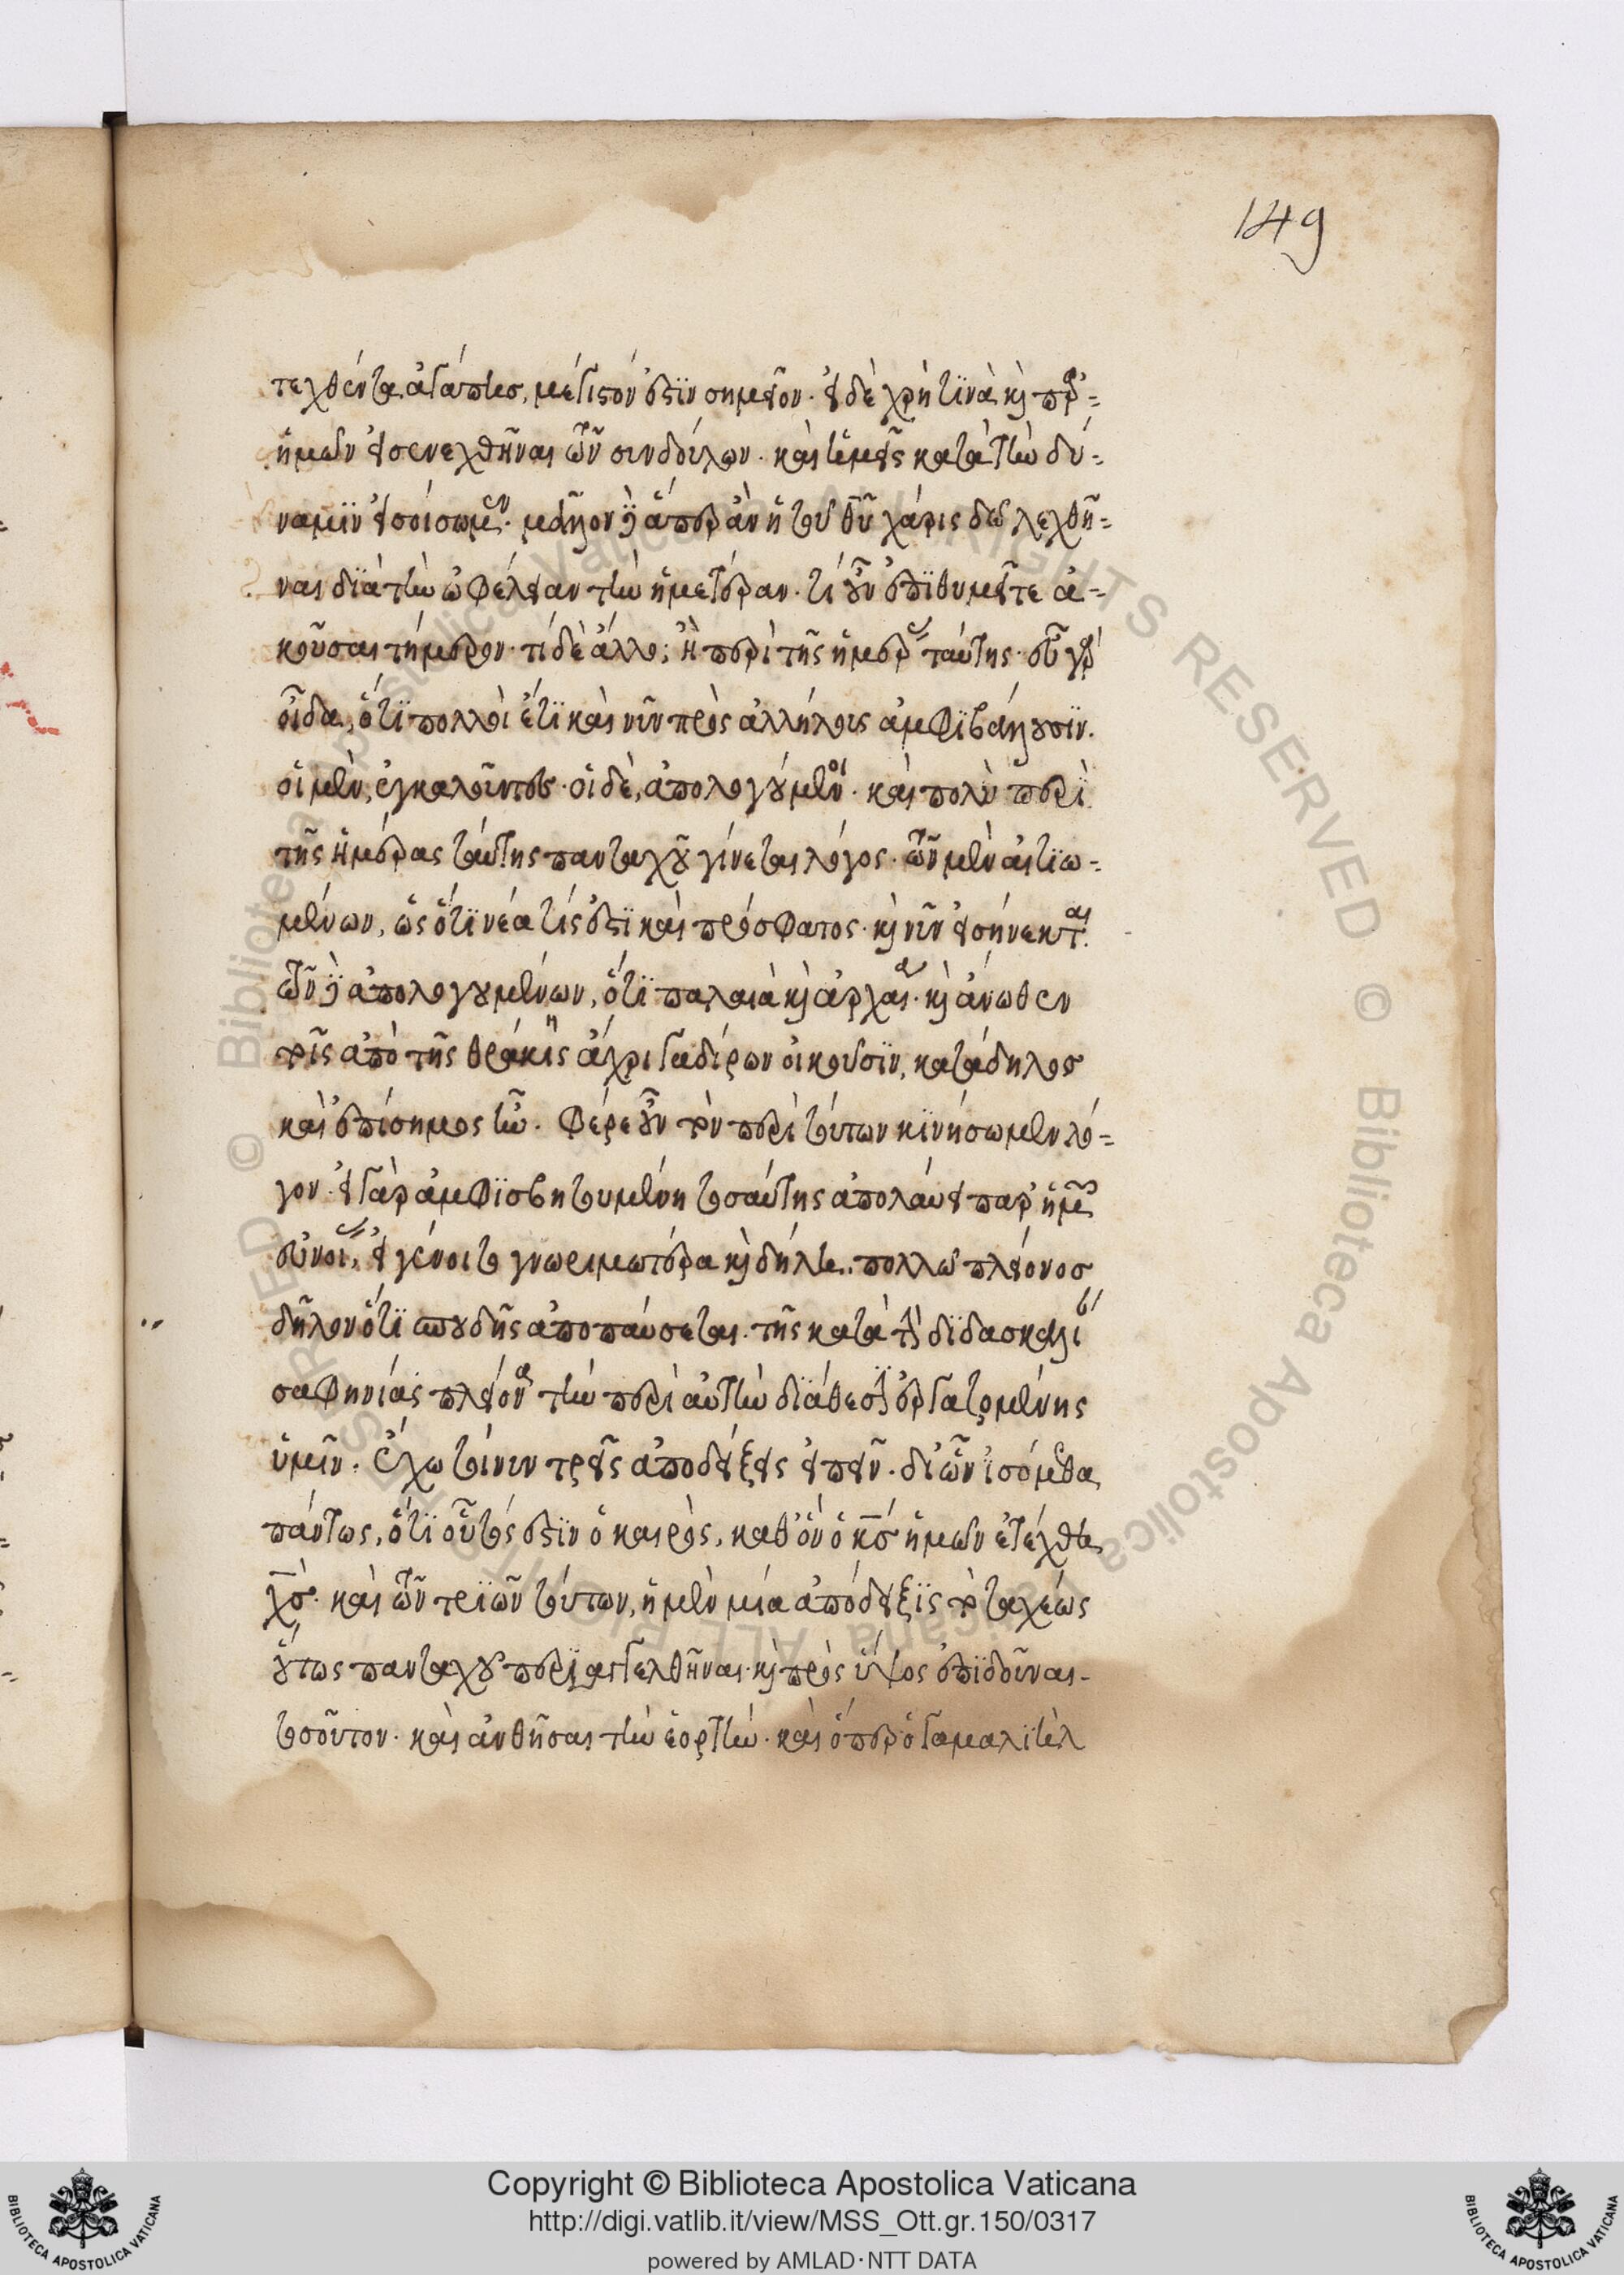 149
τεχθέντα ἀγάπης, μέγιστόν ἐστιν σημεῖον. εἰ δὲ χρή τινα καὶ παρ'
ἡμῶν εἰσενεχθῆναι τῶν συνδούλων. καὶ ἡμεῖς κατὰ τὴν δύ-
ναμιν εἰσοίσωμεν. μᾶλλον δὲ ἅπερ ἂν ἡ τοῦ θῦ χάρις δῶ λεχθῆ-
ναι διὰ τὴν ὠφέλειαν τὴν ἡμετέραν. τί οὖν ἐπιθυμεῖτε ἀ-
κοῦσαι τήμερον. τί δὲ ἄλλο; ἢ περὶ τῆς ἡμέρας ταύτης. εὖ γὰρ
οἶδα, ὅτι πολλοὶ ἔτι καὶ νῦν πρὸς ἀλλήλοις ἀμφιβάλλουσιν.
οἱ μὲν, ἐγκαλοῦντες. οἱ δὲ, ἀπολογούμενοι. καὶ πολὺ περὶ
τῆς ἡμέρας ταύτης πανταχοῦ γίνεται λόγος. τῶν μὲν αἰτιω-
μένων, ὡς ὅτι νέα τίς ἐστι καὶ πρόσφατος. καὶ νῦν εἰσήνεκται.
τῶν δὲ ἀπολογουμένων, ὅτι παλαιὰ καὶ ἀρχαία. καὶ ἄνωθεν
τοῖς ἀπὸ τῆς θράκης ἄχρι γαδίρων οἰκοῦσιν, κατάδηλος
καὶ ἐπίσημος ἦν. φέρε οὖν τὸν περὶ τούτων κινήσωμεν λό-
γον. εἰ γὰρ ἀμφισβητουμένη τοσαύτης ἀπολαύει παρ' ἡμῶν
εὐνοίας, εἰ γένοιτο γνωριμωτέρα καὶ δήλη. πολλῶ πλείονος
δῆλον ὅτι σπουδῆς ἀποπαύσεται. τῆς κατὰ τὴν διδασκαλίαν
σαφηνίας πλείονα τὴν περὶ αὐτὴν διάθεσιν ἐργαζομένης
ὑμῖν. ἔχω τοίνυν τρεῖς ἀποδείξεις εἰπεῖν. δι' ὧν εἰσόμεθα
πάντως, ὅτι οὗτός ἐστιν ὁ καιρὸς, καθ' ὃν ὁ κς ἡμῶν ἐτέχθη
χς. καὶ τῶν τριῶν τούτων, ἡ μὲν μία ἀπόδειξις τὸ ταχέως
οὕτως πανταχοῦ περιαγγελθῆναι. καὶ πρὸς ὕψος ἐπιδοῦναι
τοσοῦτον. καὶ ἀνθῆσαι τὴν ἑορτήν. καὶ ὅπερ ὁ γαμαλιὴλ
Copyright © Biblioteca Apostolica Vaticana
http://digi.vatlib.it/view/MSS_Ott.gr.150/0317
powered by AMLAD·NTT DATA